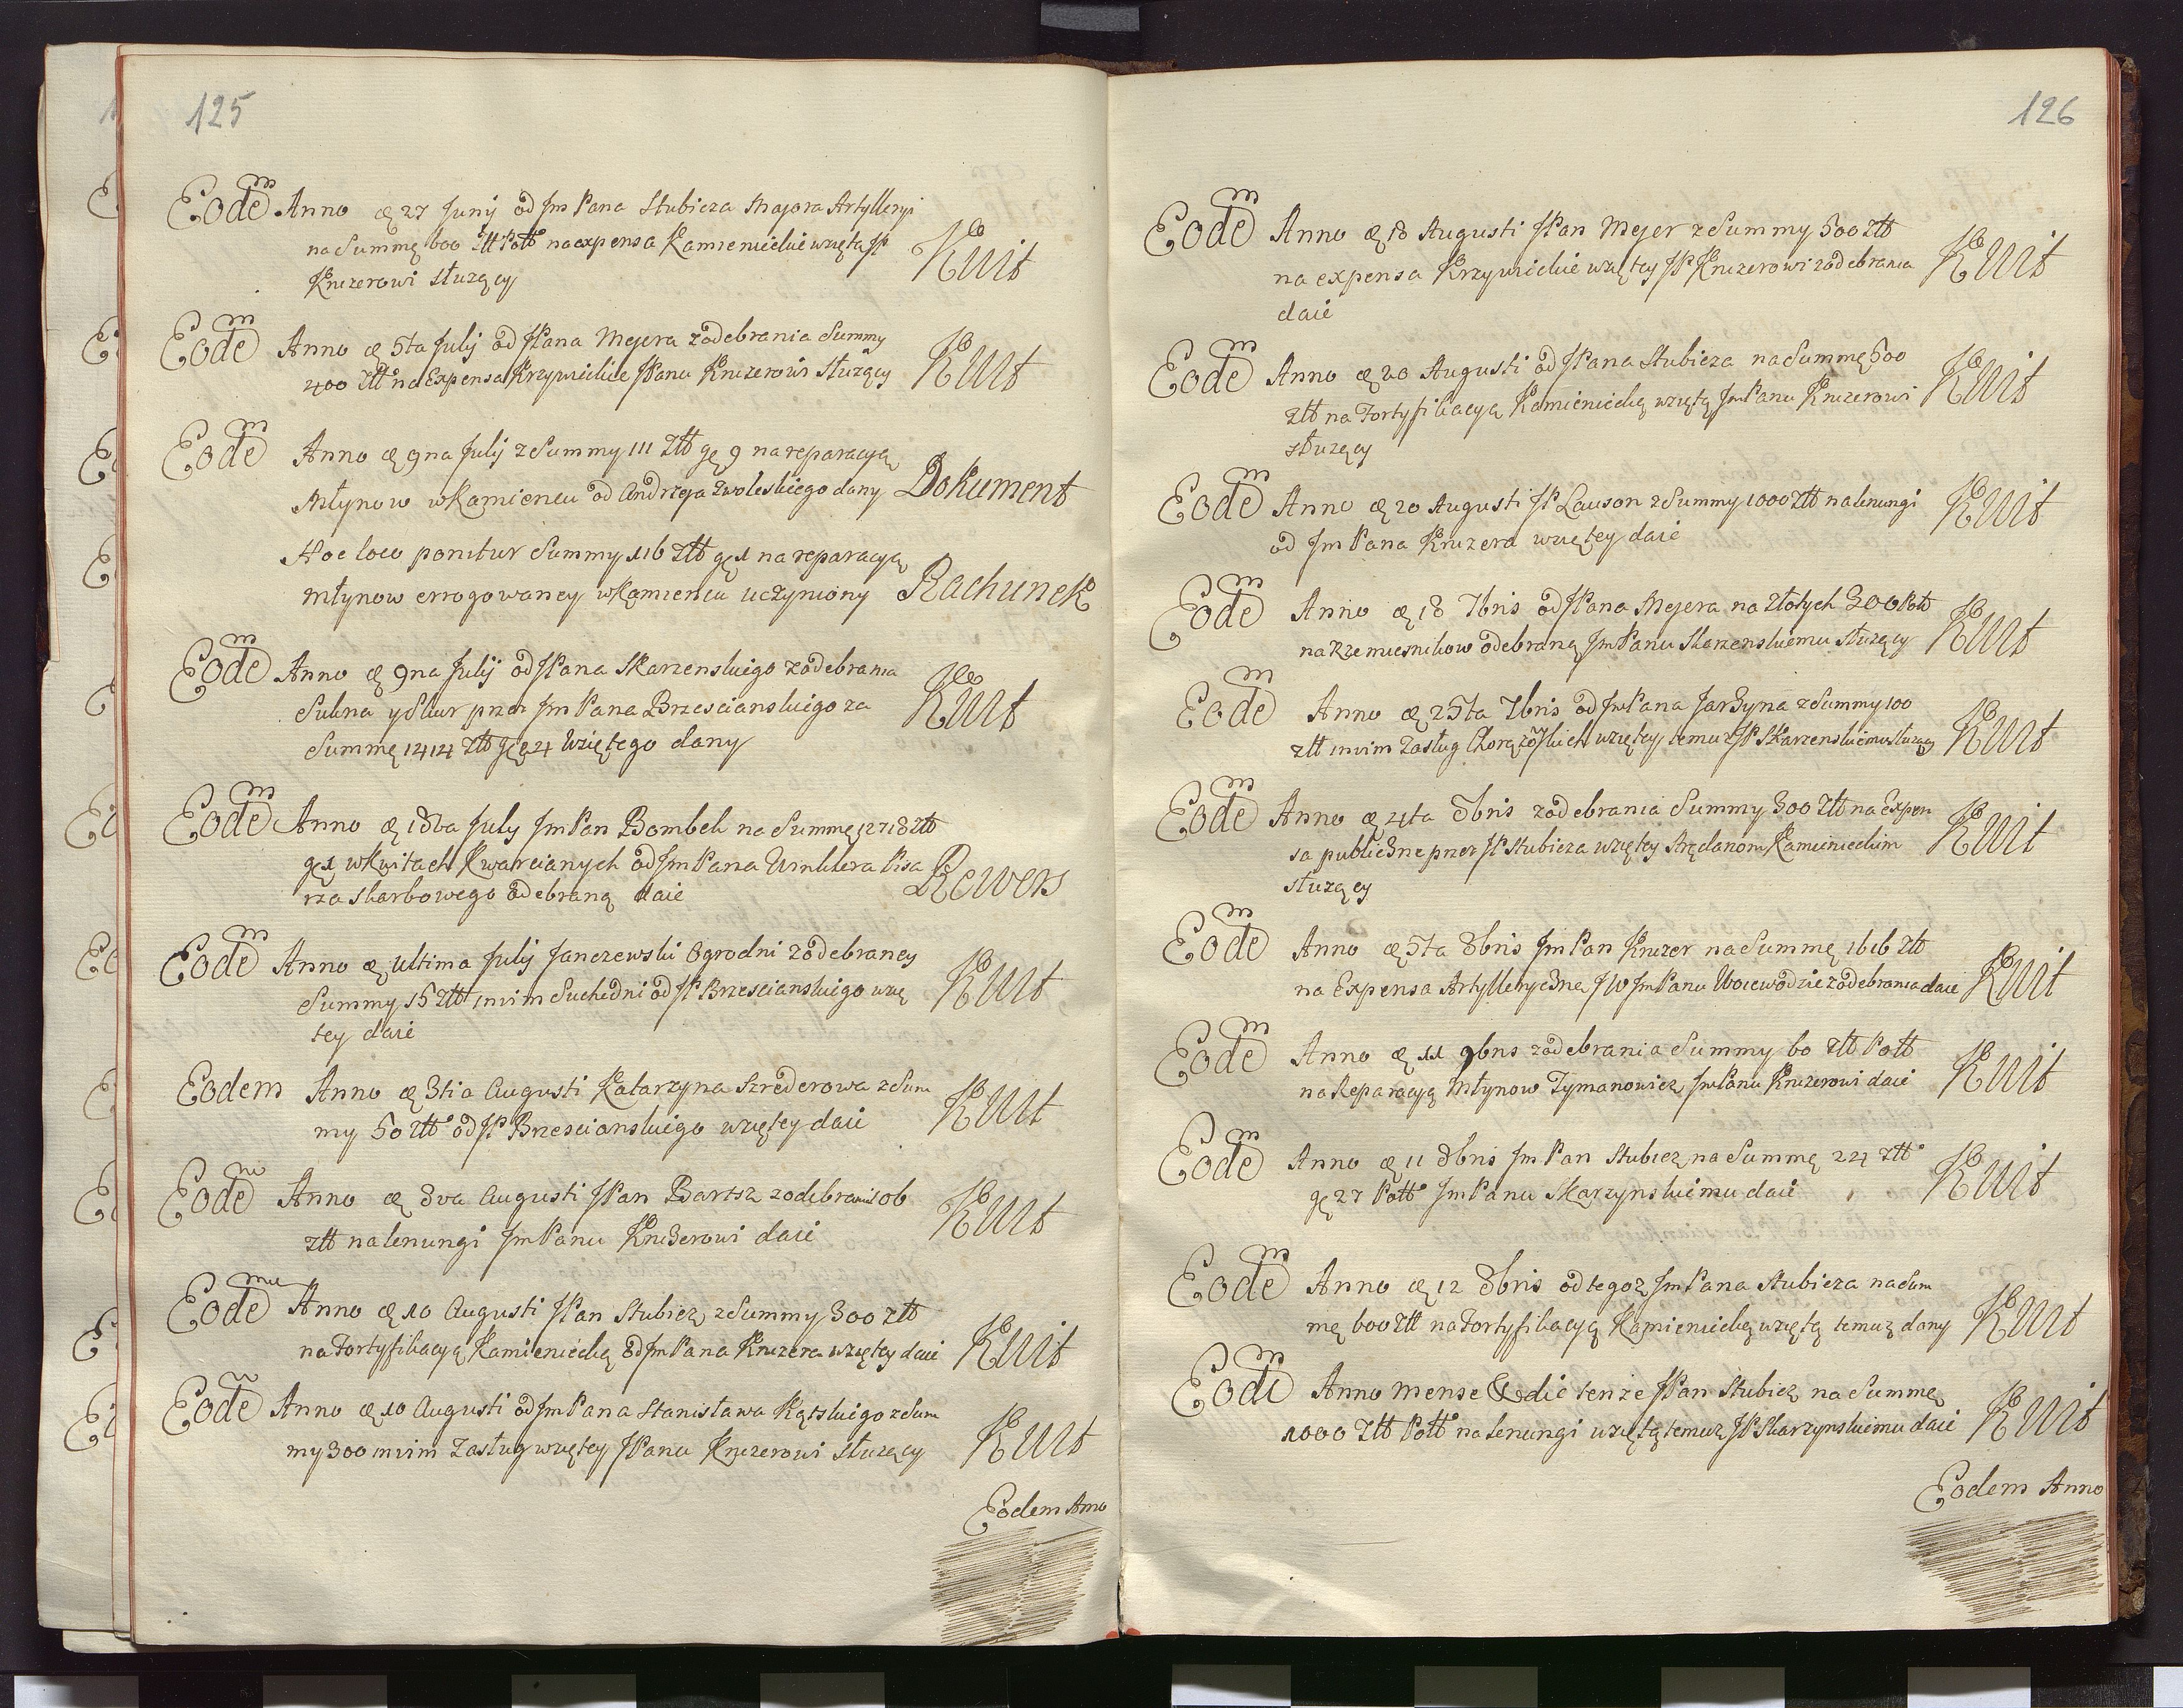 125
Eodem Anno æ 27 Junij od Jm Pana Stubicza Majora Artylleryi
na Summę 600 Złt Polł na expensa Kamienieckie wziętą JP
Knizerowi służący
Kwit
Eodem Anno æ 5ta Julij od JPana Mejera z odebrania Summy
400 Złt na Expensa Krzywieckie JPanu Knizerowi służący
Kwit
Eodem Anno æ 9na Julij z Summy 111 Złt gę 9 na reparacyą
Młynow w Kamiencu od Andrzeja Zwoleskiego dany
Dokument
Hoc loco ponitur Summy 116 Złt gę 1 na reparacyą
młynow errogowaney w Kamiencu uczyniony
Rachunek
Eodem Anno æ 9na Julij od JPana Skarzenskiego z odebrania
Sukna y Skur przez Jm Pana Brzescianskiego za
Summę 1414 Złt gę 24 wziętego dany
Kwit
Eodem Anno æ 18va July Jm Pan Bombek na Summę 12718 Złt
gę 1 w Kwitach Kwarcianych od Jm Pana Winklera Pisa
rza skarbowego odebraną daie
Rewers
Eodem Anno æ ultima Julij Janczewski Ogrodni z odebraney
Summy 15 Złt in vim Suchedni od JP Brzescianskiego wzię
tey daie
Kwit
Eodem Anno æ 3tia Augusti Katarzyna Szrederowa z Sum
my 50 Złt od JP Brzescianskiego wziętey daie
Kwit
Eodem Anno æ 8va Augusti JPan Bartsz z odebrania 106
złt na lenungi Jm Panu Knizerowi daie
Kwit
Eodem Anno æ 10 Augusti JPan Stubicz z Summy 300 złt
na Fortyfikacyą Kamieniecką od Jm Pana Knizera wziętey daie
Kwit
Eodem Anno æ 10 Augusti od Jm Pana Stanisława Kątskiego z Sum
my 300 in vim Zasług wziętey JPanu Knizerowi służący
Kwit
Eodem Anno
126
Eodem Anno æ 18 Augusti JPan Mejer z Summy 500 złt
na expensa Krzywieckie wziętey JP Knizerowi z odebrania
daie
Kwit
Eodem Anno æ 20 Augusti od JPana Stubicza na Summę 500
złt na Fortyfikacyą Kamieniecką wziętą Jm Panu Knizerowi
służący
Kwit
Eodem Anno æ 20 Augusti JP Lauson z Summy 1000 złt na lenungi
od Jm Pana Knizera wziętey daie
Kwit
Eodem Anno æ 18 7bris od JPana Mejera na złotych 300 Polł
na Rzemiesnikow odebraną Jm Panu Skarzenskiemu służący
Kwit
Eodem Anno æ 25ta 7bris od Jm Pana Jarzyna z Summy 100
złt in vim Zasług Chorążoskich wziętey temuż JP Skarzenskiemu służący
Kwit
Eodem Anno æ 4ta 8bris z odebrania Summy 300 złt na Expen
sa publiczne przez JP Stubicza wziętey Kamienieckim
służący
Kwit
Eodem Anno æ 5ta 8bris Jm Pan Knizer na Summę 1616 złt
na Expensa Artylleryczne JW Jm Panu Woiewodzie z odebrania daie
Kwit
Eodem Anno æ 11 9bris z odebrania Summy 60 złt Polł
na Reparacyą Młynow Tymanowicz Jm Panu Knizerowi daie
Kwit
Eodem Anno æ 11 8bris Jm Pan Stubicz na Summę 224 złt
gę 27 Polł Jm Panu Skarzynskiemu daie
Kwit
Eodem Anno æ 12 8bris od tegoz Jm Pana Stubicza na Sum
mę 600 złt na Fortyfikacyą Kamieniecką wziętą temuz dany
Kwit
Eodem Anno mense & die tenże JPan Stubicz na Summę
1000 Złt Polł na lenungi wziętą temuz JP Skarzynskiemu daie
Kwit
Eodem Anno